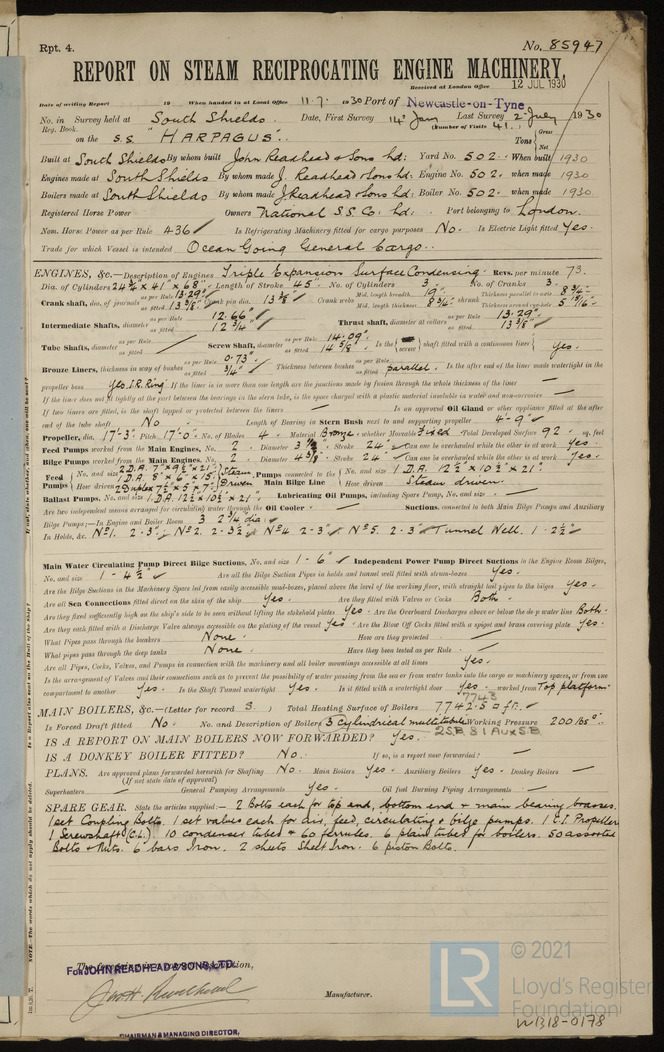 Rpt. 4.
No. 85947
REPORT ON STEAM RECIPROCATING ENGINE MACHINERY.
Received at London Office 12 JUL 1930
Date of writing Report 19 When handed in at Local Office 11.7. 1930 Port of Newcastle-on-Tyne
No. in Survey held at South Shields Date, First Survey 14 Jan Last Survey 2 July 1930
Reg. Book. (Number of Visits 41.)
on the S.S. "HARPAGUS" Tons Gross Net
Built at South Shields By whom built John Readhead & Sons Ld: Yard No. 502. When built 1930
Engines made at South Shields By whom made J. Readhead & Sons Ld: Engine No. 502. when made 1930
Boilers made at South Shields By whom made J. Readhead & Sons Ld: Boiler No. 502. when made 1930
Registered Horse Power Owners National S.S. Co. Ld. Port belonging to London.
Nom. Horse Power as per Rule 436 Is Refrigerating Machinery fitted for cargo purposes No. Is Electric Light fitted Yes.
Trade for which Vessel is intended Ocean Going General Cargo.
ENGINES, &c.—Description of Engines Triple Expansion Surface Condensing. Revs. per minute 73.
Dia. of Cylinders 24¾ x 41 x 68" Length of Stroke 45. No. of Cylinders 3 No. of Cranks 3.
Crank shaft, dia. of journals as per Rule 13.29" as fitted 13⅜" Crank pin dia. 13⅜" Crank webs Mid. length breadth 19" Mid. length thickness 8¾" shrunk Thickness parallel to axis 8¾" Thickness around eye-hole 5 15/16"
Intermediate Shafts, diameter as per Rule 12.66" as fitted 12¾" Thrust shaft, diameter at collars as per Rule 13.29" as fitted 13⅜"
Tube Shafts, diameter as per Rule as fitted Screw Shaft, diameter as per Rule 14.09" as fitted 14⅝" Is the screw shaft fitted with a continuous liner Yes.
Bronze Liners, thickness in way of bushes as per Rule 0.73" as fitted ¾" Thickness between bushes as per Rule as fitted parallel. Is the after end of the liner made watertight in the
propeller boss Yes I.R. Ring If the liner is in more than one length are the junctions made by fusion through the whole thickness of the liner —
If the liner does not fit tightly at the part between the bearings in the stern tube, is the space charged with a plastic material insoluble in water and non-corrosive —
If two liners are fitted, is the shaft lapped or protected between the liners — Is an approved Oil Gland or other appliance fitted at the after
end of the tube shaft No Length of Bearing in Stern Bush next to and supporting propeller 4-9"
Propeller, dia. 17'-3" Pitch 17'-0" No. of Blades 4 Material Bronze whether Moveable Fixed Total Developed Surface 92 sq. feet
Feed Pumps worked from the Main Engines, No. 2 Diameter Stroke 24" Can one be overhauled while the other is at work Yes.
Bilge Pumps worked from the Main Engines, No. 2 Diameter 4⅜" Stroke 24" Can one be overhauled while the other is at work Yes.
Feed Pumps No. and size 2 D.A. 7" x 9½" x 21" 1 D.A. 8" x 6" x 15" How driven 2 Duplex 7½ x 5 x 7" Steam Driven Pumps connected to the Main Bilge Line No. and size 1 D.A. 12½ x 10½ x 21" How driven Steam driven.
Ballast Pumps, No. and size 1 D.A. 12½ x 10½ x 21" Lubricating Oil Pumps, including Spare Pump, No. and size —
Are two independent means arranged for circulating water through the Oil Cooler — Suctions, connected to both Main Bilge Pumps and Auxiliary
Bilge Pumps;—In Engine and Boiler Room 3 2¼" dia:
In Holds, &c. No 1. 2-3" No 2. 2-3½" No 4. 2-3" No 5. 2-3" Tunnel Well. 1-2½"
Main Water Circulating Pump Direct Bilge Suctions, No. and size 1-6" Independent Power Pump Direct Suctions to the Engine Room Bilges,
No. and size 1-4½" Are all the Bilge Suction Pipes in holds and tunnel well fitted with strum-boxes Yes.
Are the Bilge Suctions in the Machinery Space led from easily accessible mud-boxes, placed above the level of the working floor, with straight tail pipes to the bilges Yes.
Are all Sea Connections fitted direct on the skin of the ship. Yes. Are they fitted with Valves or Cocks Both.
Are they fixed sufficiently high on the ship's side to be seen without lifting the stokehold plates Yes. Are the Overboard Discharges above or below the deep water line Both.
Are they each fitted with a Discharge Valve always accessible on the plating of the vessel Yes Are the Blow Off Cocks fitted with a spigot and brass covering plate Yes.
What Pipes pass through the bunkers None. How are they protected —
What pipes pass through the deep tanks None. Have they been tested as per Rule —
Are all Pipes, Cocks, Valves, and Pumps in connection with the machinery and all boiler mountings accessible at all times Yes.
Is the arrangement of Valves and their connections such as to prevent the possibility of water passing from the sea or from water tanks into the cargo or machinery spaces, or from one
compartment to another Yes. Is the Shaft Tunnel watertight Yes. Is it fitted with a watertight door Yes. worked from Top platform
7743
MAIN BOILERS, &c.—(Letter for record S.) Total Heating Surface of Boilers 7742.5 □ ft.
Is Forced Draft fitted No. No. and Description of Boilers 3 Cylindrical multitubular Working Pressure 200 lbs □".
2 S.B. & 1 Aux S.B.
IS A REPORT ON MAIN BOILERS NOW FORWARDED? Yes.
IS A DONKEY BOILER FITTED? No. If so, is a report now forwarded? —
PLANS. Are approved plans forwarded herewith for Shafting No. Main Boilers Yes Auxiliary Boilers Yes Donkey Boilers —
(If not state date of approval)
Superheaters — General Pumping Arrangements Yes. Oil fuel Burning Piping Arrangements —
SPARE GEAR. State the articles supplied:— 2 bolts each for top end, bottom end & main bearing brasses.
1 set Coupling Bolts. 1 set valves each for air, feed, circulating & bilge pumps. 1 C.I. Propeller
1 Screwshaft (C.L.) 10 condenser tubes & 60 ferrules. 6 plain tubes for boilers. 50 assorted
Bolts & Nuts. 6 bars Iron. 2 sheets Sheet Iron. 6 piston Bolts.
The foregoing is a correct description,
For JOHN READHEAD & SONS, LTD.
Manufacturer.
CHAIRMAN & MANAGING DIRECTOR.
NOTE.—The words which do not apply should be deleted.
© 2021
LR
Lloyd's Register
Foundation
W1318-0178